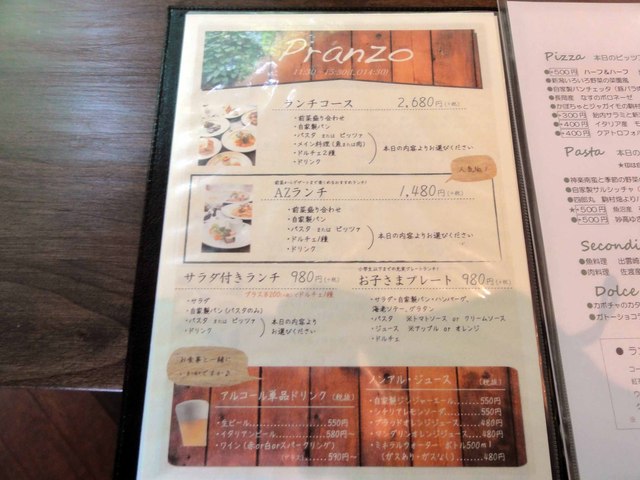 Pranzo
11:30 - 15:30(L.O14:30)
ランチコース 2,680円(+税)
・前菜盛り合わせ
・自家製パン
・パスタ または ピッツァ
・メイン料理(魚または肉)
・ドルチェ2種
・ドリンク
本日の内容よりお選びください
人気No.1
前菜からデザートまで楽しめるおすすめランチ!
AZランチ 1,480円(+税)
・前菜盛り合わせ
・自家製パン
・パスタ または ピッツァ
・ドルチェ1種
・ドリンク
本日の内容よりお選びください
サラダ付きランチ 980円(+税)
プラス¥200(+税)でドルチェ1種
・サラダ
・自家製パン(パスタのみ)
・パスタ または ピッツァ
・ドリンク
本日の内容より
お選びください
小学生以下までの充実プレートランチ!
お子さまプレート 980円(+税)
・サラダ・自家製パン・ハンバーグ、
海老フライ、グラタン
・パスタ ※トマトソース or クリームソース
・ジュース ※アップル or オレンジ
・ドルチェ
お食事と一緒に
いかがですか♪
アルコール単品ドリンク (税抜)
・生ビール 550円
・イタリアンビール 580円～
・ワイン(赤or白orスパークリング)
(グラス) 590円～
ノンアル・ジュース (税抜)
・自家製ジンジャーエール 550円
・シチリアレモンソーダ 550円
・ブラッドオレンジジュース 480円
・マンダリンオレンジジュース 480円
・ミネラルウォーター ボトル500ml
(ガスあり・ガスなし) 480円
Pizza 本日のピッツ
●+500円 ハーフ&ハーフ
●新潟いろいろ野菜の菜園風
●自家製パンチェッタ(豚バラ肉
●長岡産 なすのボロネーゼ
●かぼちゃとジャガイモの
●+300円 胎内サラミと新
●+400円 イタリア産 モ
●+400円 クアトロフォ
Pasta 本日の
●神楽南蛮と季節の野菜の
●自家製サルシッチャ
●四郎丸 駒村畑より
★+500円 魚沼産
●+500円 妙高ゆき
Secondi
●魚料理 出雲崎
●肉料理 佐渡
Dolce
●カボチャのカタ
●ガトーショコラ
● ラ